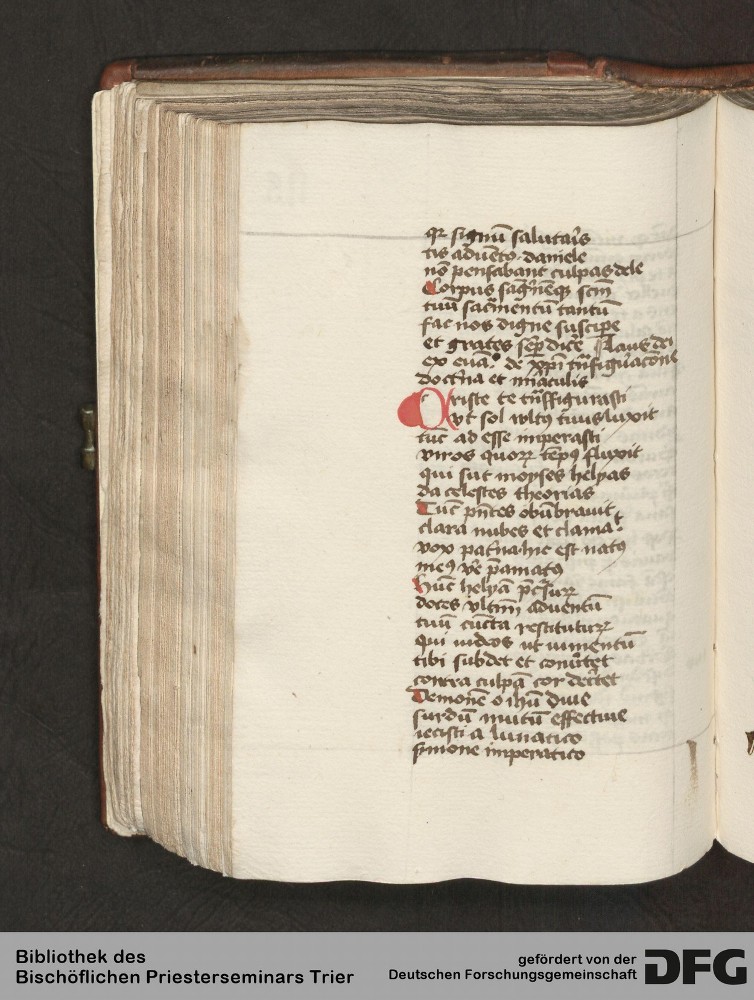 qr signū salutar̄s
tis aduēto daniele
nō pensabant culpas dele
Corpus sāgⁱnēqꝫ scm̄
tuū sacⁱmentū tantū
fac nos digne suscipe
et grates semp̱ dicē Laus dei
ex euā. de xp̄i tⁿsfiguⁱacōne
doctⁱna et miⁱaculis
Criste te tⁿsffigurasti
vt sol vultꝰ tuus luxit
tūc ad esse imperasti
viros quoꝝ tēpꝰ fluxit
qui sūt moyses helyas
da celestes theorias
Tūc pn̄tes obūbrauit
clara nubes et clamaᵗ
vox patⁱna hic est natꝰ
meꝰ vē p̄amatꝰ
Hūc helyā p̄cⁱsuꝝ
doces vltimū aduentū
tuū cūcta restitutuꝝ
qui iudeos ut iumentū
tibi subdet et conūtet
contra culpā cor dertet
Demonē o ihū diue
surdū mutū effectiue
iecisti a lunatico
sⁱmone imperatico
Bibliothek des
Bischöflichen Priesterseminars Trier
gefördert von der
Deutschen Forschungsgemeinschaft
DFG